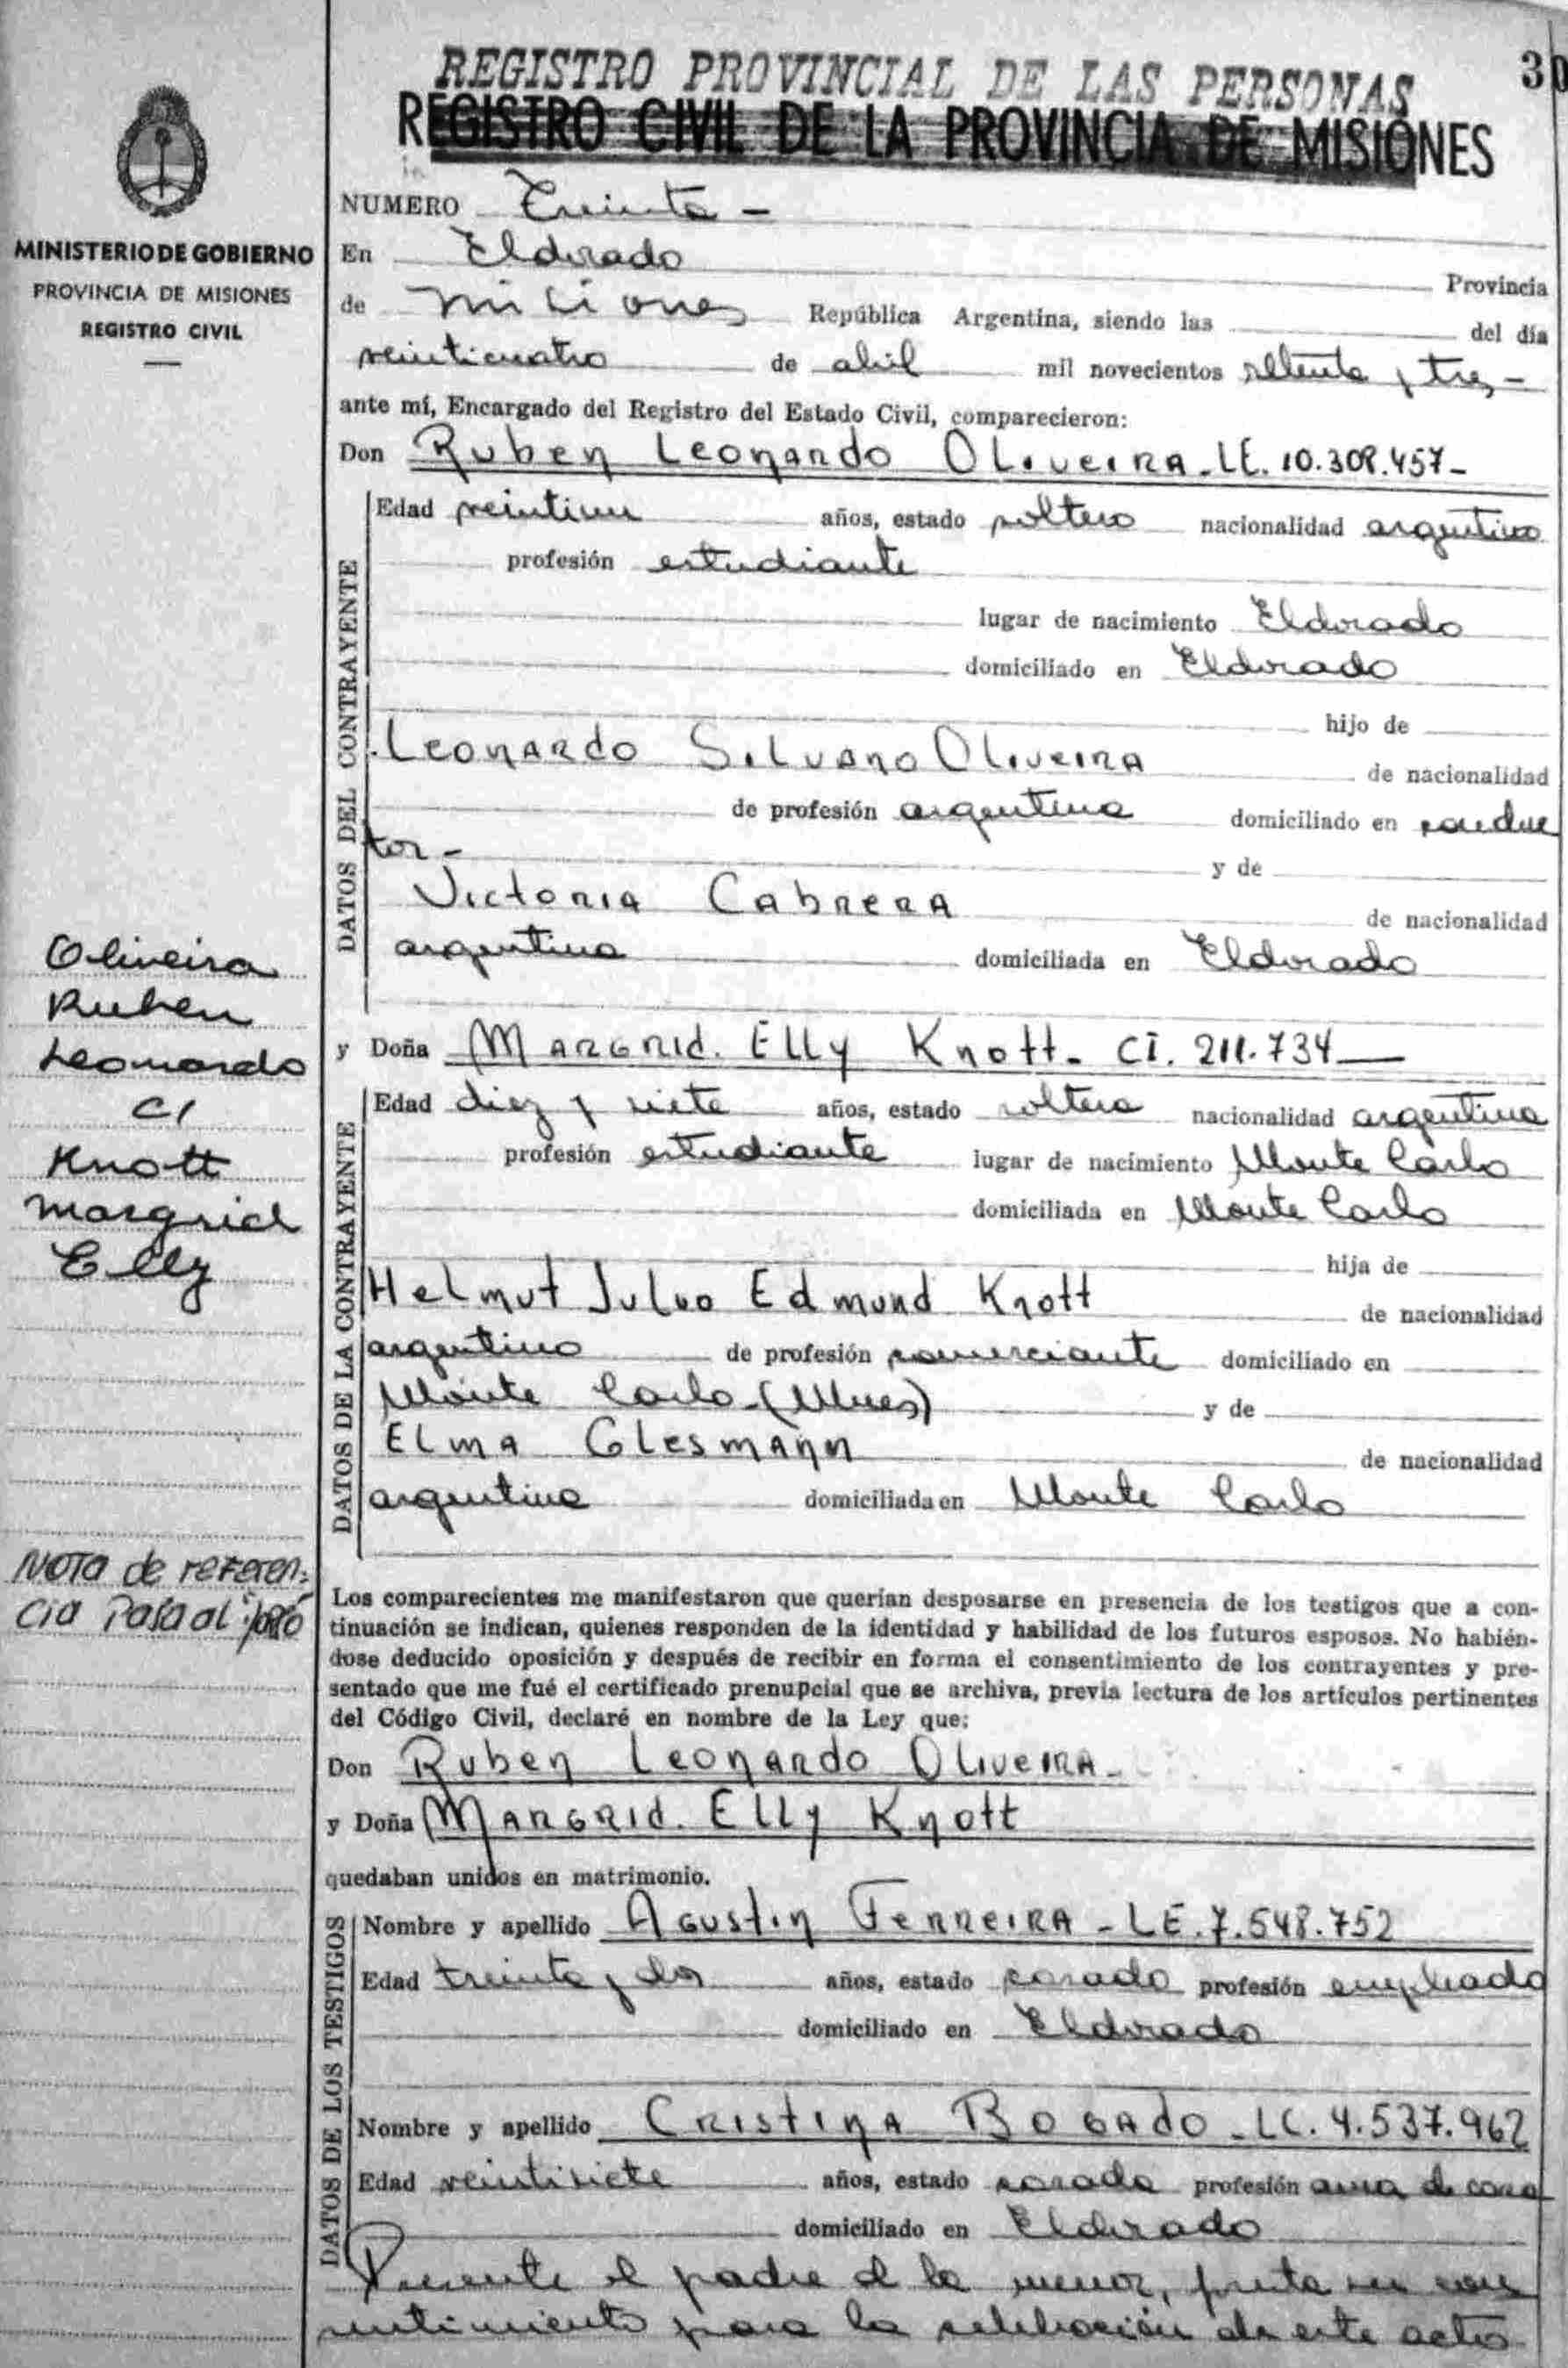 REGISTRO PROVINCIAL DE LAS PERSONAS
30
REGISTRO CIVIL DE LA PROVINCIA DE MISIONES
MINISTERIO DE GOBIERNO
PROVINCIA DE MISIONES
REGISTRO CIVIL
NUMERO Treinta -
En Eldorado Provincia
de Misiones República Argentina, siendo las del día
veinticuatro de abril mil novecientos setenta y tres -
ante mí, Encargado del Registro del Estado Civil, comparecieron:
Don Ruben Leonardo Oliveira - LE. 10.308.457 -
DATOS DEL CONTRAYENTE
Edad veintiun años, estado soltero nacionalidad argentino
profesión estudiante
lugar de nacimiento Eldorado
domiciliado en Eldorado
hijo de
Leonardo Silvano Oliveira de nacionalidad
de profesión argentina domiciliado en conduc
tor - y de
Victoria Cabrera de nacionalidad
argentina domiciliada en Eldorado
Oliveira
Ruben
Leonardo
C/
Knott
Margrid
Elly
y Doña Margrid. Elly Knott - CI. 211.734 —
DATOS DE LA CONTRAYENTE
Edad diez y siete años, estado soltera nacionalidad argentina
profesión estudiante lugar de nacimiento Monte Carlo
domiciliada en Monte Carlo
hija de
Helmut Julio Edmund Knott de nacionalidad
argentino de profesión comerciante domiciliado en
Monte Carlo - (Mnes) y de
Elma Glesmann de nacionalidad
argentina domiciliada en Monte Carlo
Nota de referen-
cia Pasa al
Los comparecientes me manifestaron que querían desposarse en presencia de los testigos que a con-
tinuación se indican, quienes responden de la identidad y habilidad de los futuros esposos. No habién-
dose deducido oposición y después de recibir en forma el consentimiento de los contrayentes y pre-
sentado que me fué el certificado prenupcial que se archiva, previa lectura de los artículos pertinentes
del Código Civil, declaré en nombre de la Ley que:
Don Ruben Leonardo Oliveira -
y Doña Margrid. Elly Knott
quedaban unidos en matrimonio.
DATOS DE LOS TESTIGOS
Nombre y apellido Agustin Ferreira - LE. 7.548.752
Edad treinta y dos años, estado casado profesión empleado
domiciliado en Eldorado
Nombre y apellido Cristina Bogado - LC. 4.537.962
Edad veintisiete años, estado casada profesión ama de casa
domiciliado en Eldorado
Presente el padre d la menor, presta su con
sentimiento para la celebración de este acto